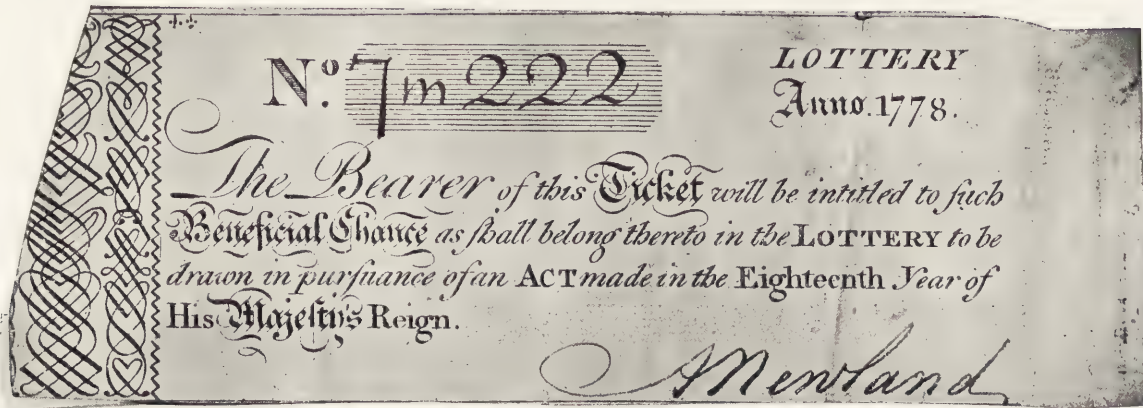 No. 7m222
LOTTERY
Anno. 1778.
The Bearer of this Ticket will be intitled to ſuch
Beneficial Chance as ſhall belong thereto in the LOTTERY to be
drawn in purſuance of an ACT made in the Eighteenth Year of
His Majeſty's Reign.
A Newland